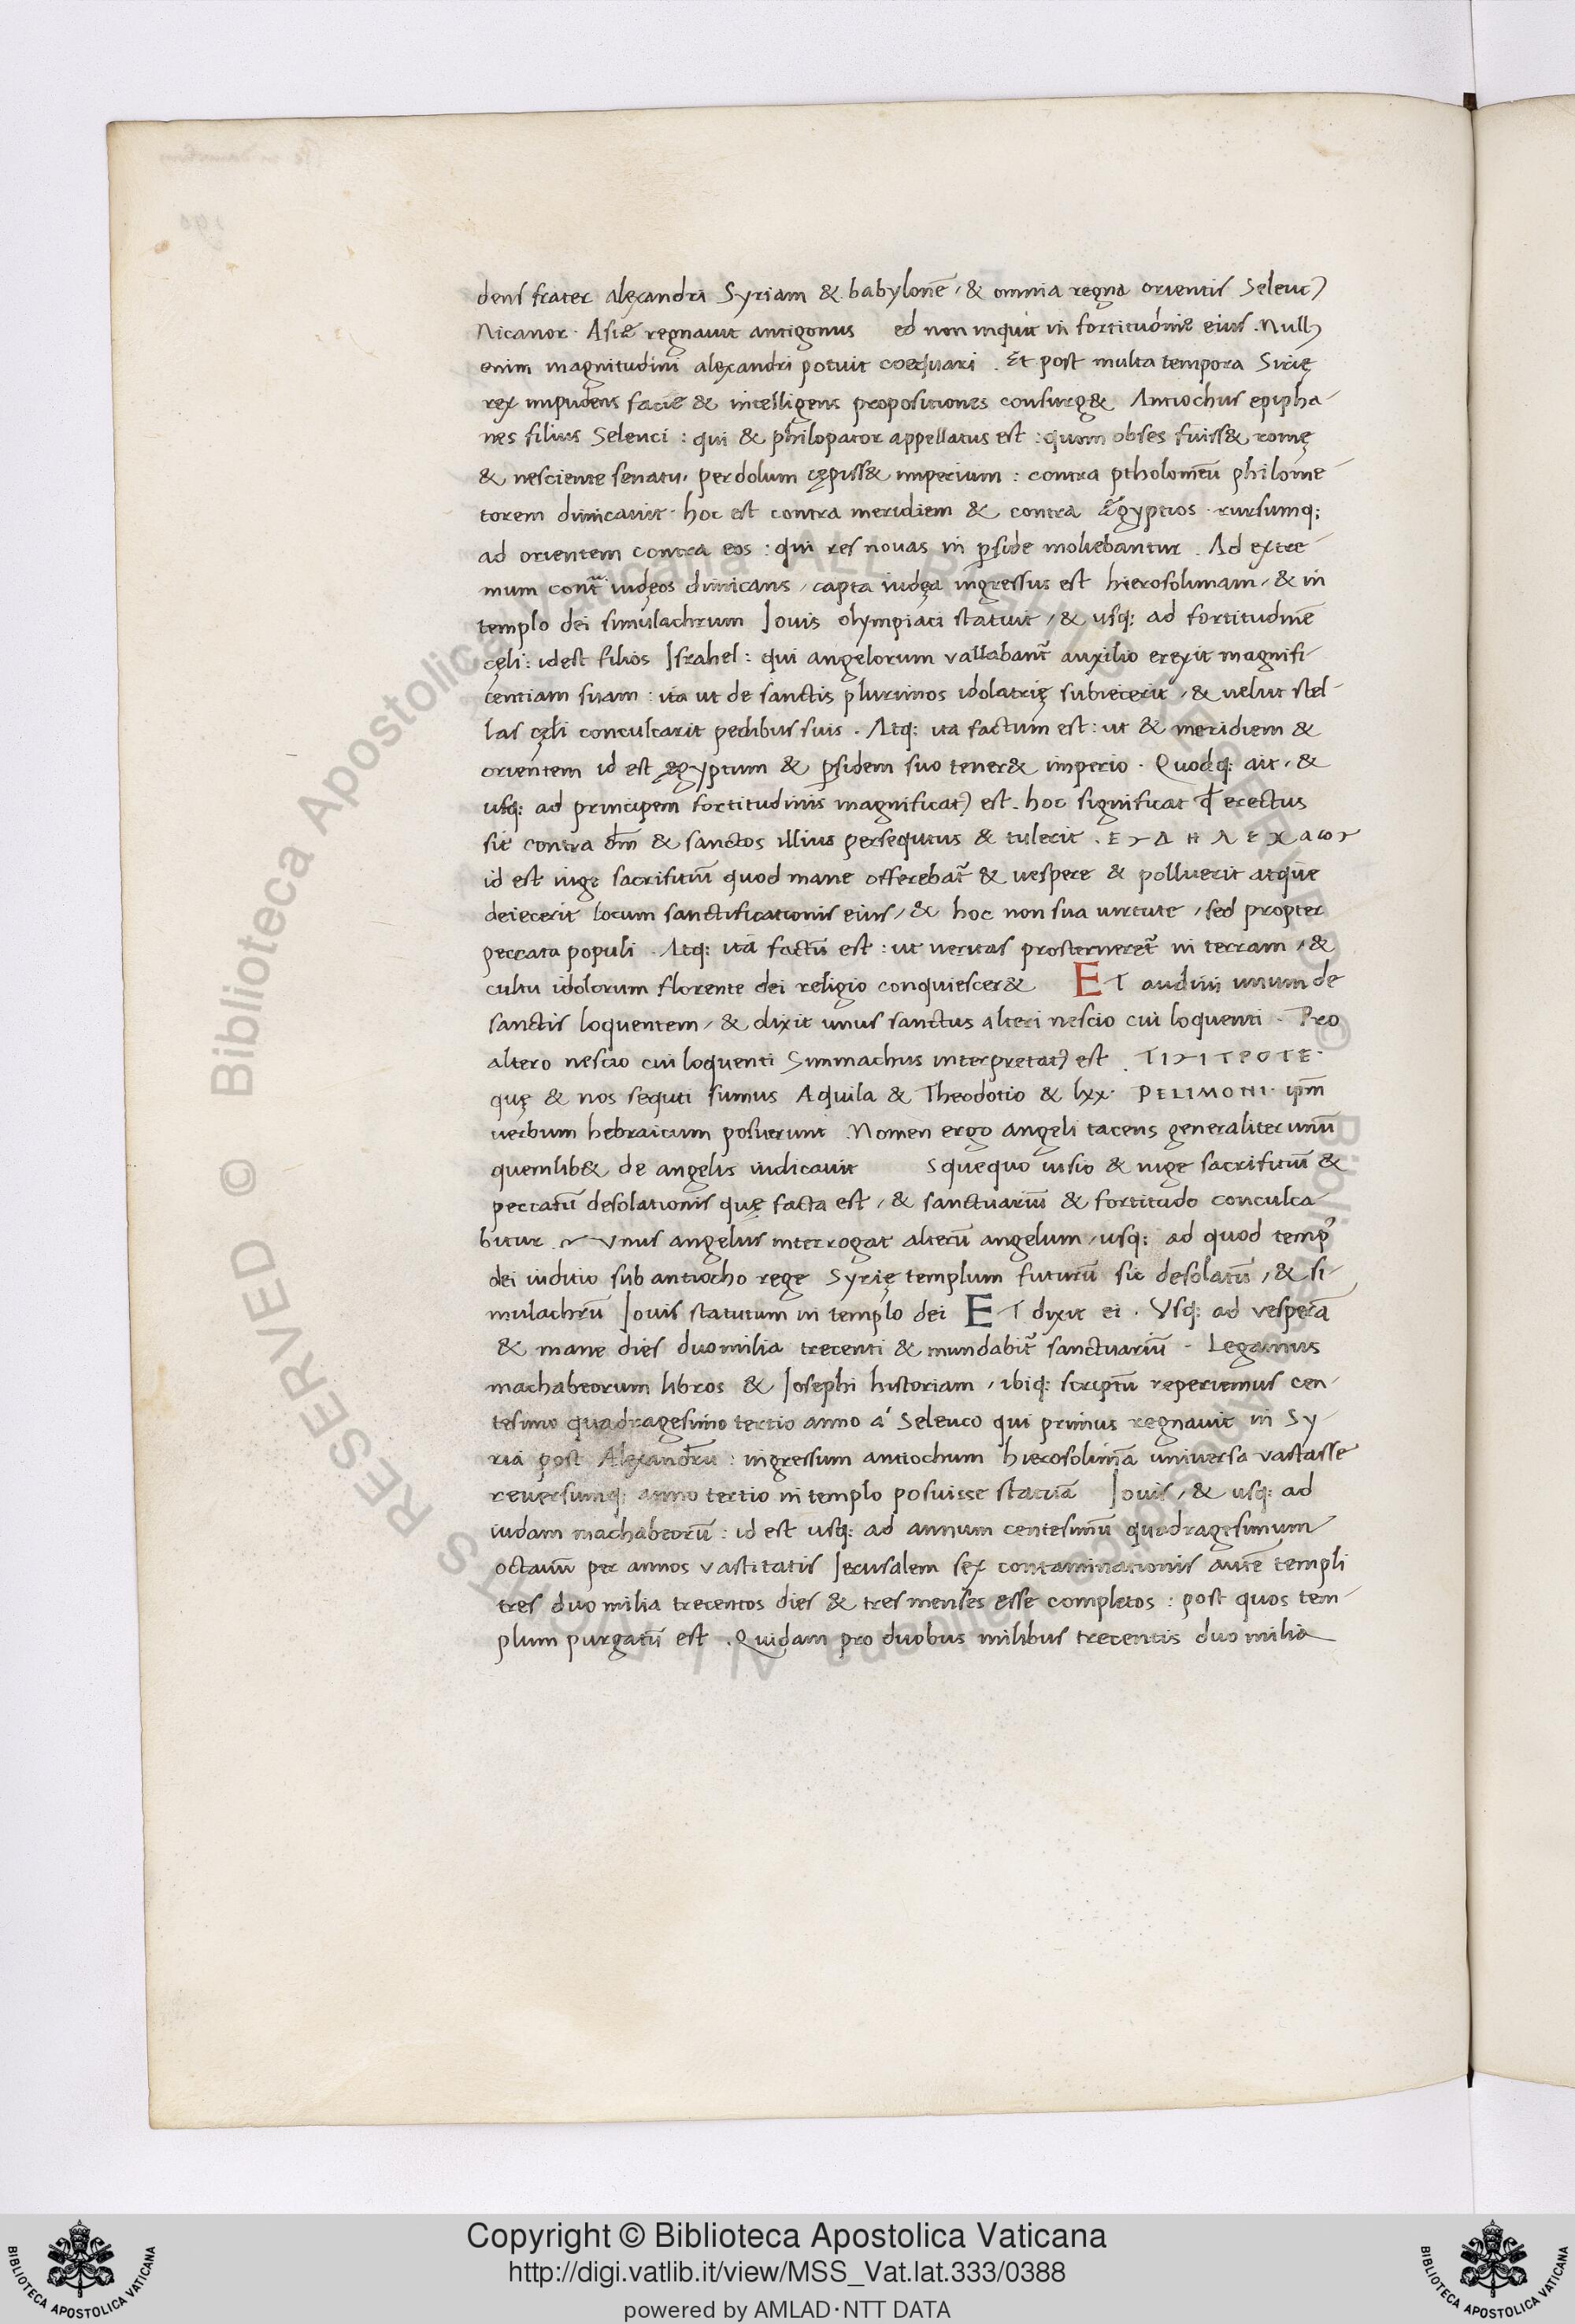 dens frater alexandri Syriam & babylonē, & omnia regna orientis Seleucꝰ
Nicanor. Asię regnauit antigonus ed non inquit in fortitudine eius. Nullꝰ
enim magnitudini alexandri potuit coequari. Et post multa tempora Sirię
rex impudens facie & intelligens propositiones consurg& Antiochus epipha-
nes filius Seleuci: qui & philopator appellatus est: quom obses fuiss& romę
& nesciente senatu, per dolum cępiss& imperium: contra ptholomeū philome-
torem dimicauit. hoc est contra meridiem & contra ęgyptios. rursumq:
ad orientem contra eos: qui res nouas in ꝑside moliebantur. Ad extre-
mum cont iudęos dimicans, capta iudęa ingressus est hierosolimam, & in
templo dei simulachrum Iouis olympiaci statuit, & usq: ad fortitudinē
cęli: idest filios Israhel: qui angelorum vallabant̃ auxilio erexit magnifi-
centiam suam: ita ut de sanctis plurimos idolatrię subiecerit, & uelut stel-
las cęli conculcarit pedibus suis. Atq: ita factum est: ut & meridiem &
orientem id est ęgyptum & ꝑsidem suo tener& imperio. Quodq: ait, &
usq: ad principem fortitudinis magnificatꝰ est. hoc significat ꝙ erectus
sit contra dm̄ & sanctos illius persequtus & tulerit.
id est iuge sacrifitiū quod mane offerebat̃ & uespere & polluerit atque
deiecerit locum sanctificationis eius, & hoc non sua uirtute, sed propter
peccata populi. Atq: ita factū est: ut ueritas prosterneret̃ in terram, &
cultu idolorum florente dei religio conquiescer& ET audiui unum de
sanctis loquentem, & dixit unus sanctus alteri nescio cui loquenti. Pro
altero nescio cui loquenti Simmachus interpretatꝰ est.
quę & nos sequti sumus Aquila & Theodotio & lxx. PELIMONI. ipm̄
uerbum hebraicum posuerunt. Nomen ergo angeli tacens generaliter unū
quemlib& de angelis indicauit squequo uisio & iuge sacrifitiū &
peccatū desolationis quę facta est, & sanctuariū & fortitudo conculca-
bitur. Vnus angelus interrogat alterū angelum, usq: ad quod tempꝰ
dei iuditio sub antiocho rege Syrię templum futurū sit desolatū, & si-
mulachrū Iouis statutum in templo dei ET dixit ei. Vsq: ad vesperā
& mane dies duo milia trecenti & mundabit̃ sanctuariū. Legamus
machabeorum libros & Iosephi historiam, ibiq: scriptū reperiemus cen-
tesimo quadragesimo tertio anno a' Seleuco qui primus regnauit in Sy-
ria post Alexandrū: ingressum antiochum hierosolimā universa vastasse
reuersumq: anno tertio in templo posuisse statuā Iouis, & usq: ad
iudam machabeorū: id est usq: ad annum centesimū quadragesimum
octauū per annos vastitatis Ierusalem sex contaminationis autē templi
tres duo milia trecentos dies & tres menses esse completos: post quos tem-
plum purgatū est. Quidam pro duobus milibus trecentis duo milia
Copyright © Biblioteca Apostolica Vaticana
http://digi.vatlib.it/view/MSS_Vat.lat.333/0388
powered by AMLAD·NTT DATA